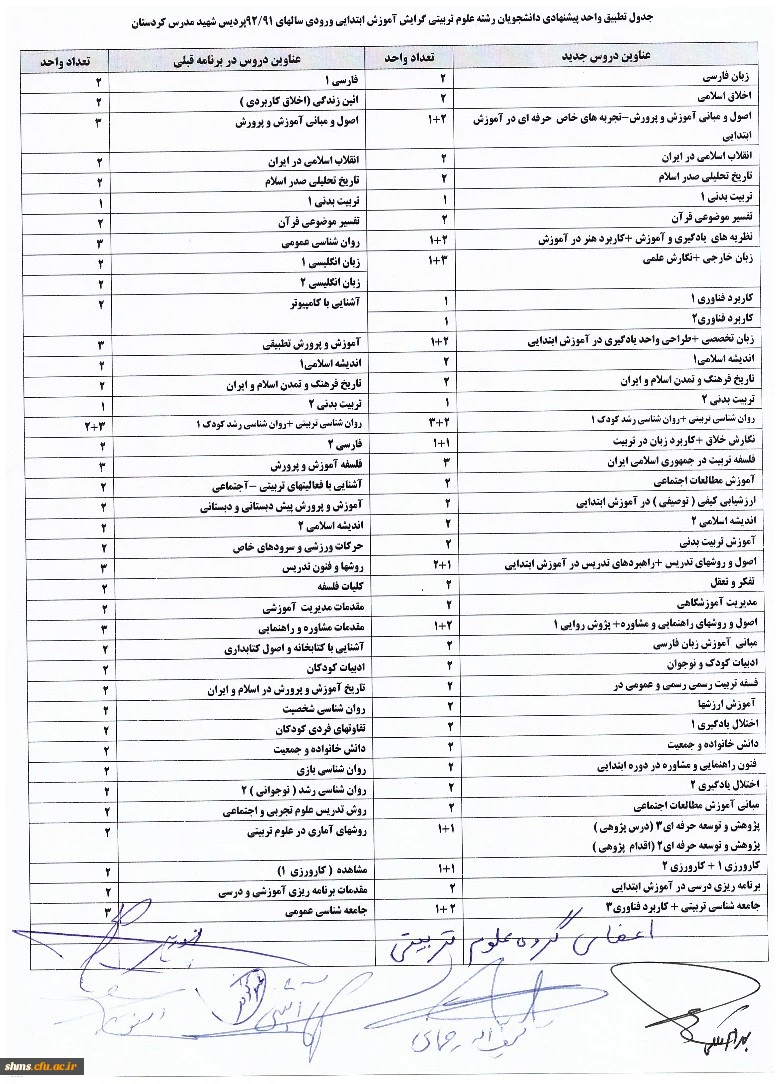 جدول تطبیق واحد پیشنهادی دانشجویان رشته علوم تربیتی گرایش آموزش ابتدایی ورودی سالهای ۹۲/۹۱پردیس شهید مدرس کردستان
عناوین دروس جدید تعداد واحد عناوین دروس در برنامه قبلی تعداد واحد
زبان فارسی ۲ فارسی ۱ ۲
اخلاق اسلامی ۲ ائین زندگی (اخلاق کاربردی ) ۲
اصول و مبانی آموزش و پرورش–تجربه های خاص حرفه ای در آموزش ۱+۲ اصول و مبانی آموزش و پرورش ۳
ابتدایی
انقلاب اسلامی در ایران ۲ انقلاب اسلامی در ایران ۲
تاریخ تحلیلی صدر اسلام ۲ تاریخ تحلیلی صدر اسلام ۲
تربیت بدنی ۱ ۱ تربیت بدنی ۱ ۱
تفسیر موضوعی قرآن ۲ تفسیر موضوعی قرآن ۲
نظریه های یادگیری و آموزش +کاربرد هنر در آموزش ۱+۲ روان شناسی عمومی ۳
زبان خارجی +نگارش علمی ۱+۳ زبان انگلیسی ۱ ۲
زبان انگلیسی ۲ ۲
کاربرد فناوری ۱ ۱ آشنایی با کامپیوتر ۲
کاربرد فناوری۲ ۱
زبان تخصصی +طراحی واحد یادگیری در آموزش ابتدایی ۱+۲ آموزش و پرورش تطبیقی ۳
اندیشه اسلامی۱ ۲ اندیشه اسلامی۱ ۲
تاریخ فرهنگ و تمدن اسلام و ایران ۲ تاریخ فرهنگ و تمدن اسلام و ایران ۲
تربیت بدنی ۲ ۱ تربیت بدنی ۲ ۱
روان شناسی تربیتی +روان شناسی رشد کودک ۱ ۳+۲ روان شناسی تربیتی +روان شناسی رشد کودک ۱ ۲+۳
نگارش خلاق +کاربرد زبان در تربیت ۱+۱ فارسی ۲ ۲
فلسفه تربیت در جمهوری اسلامی ایران ۳ فلسفه آموزش و پرورش ۳
آموزش مطالعات اجتماعی ۲ آشنایی با فعالیتهای تربیتی –آجتماعی ۲
ارزشیابی کیفی ( توصیفی ) در آموزش ابتدایی ۲ آموزش و پرورش پیش دبستانی و دبستانی ۲
اندیشه اسلامی ۲ ۲ اندیشه اسلامی ۲ ۲
آموزش تربیت بدنی ۲ حرکات ورزشی و سرودهای خاص ۲
اصول و روشهای تدریس +راهبردهای تدریس در آموزش ابتدایی ۲+۱ روشها و فنون تدریس ۳
تفکر و تعقل ۲ کلیات فلسفه ۲
مدیریت آموزشگاهی ۲ مقدمات مدیریت آموزشی ۲
اصول و روشهای راهنمایی و مشاوره+ پژوش روایی ۱ ۱+۲ مقدمات مشاوره و راهنمایی ۳
مبانی آموزش زبان فارسی ۲ آشنایی با کتابخانه و اصول کتابداری ۲
ادبیات کودک و نوجوان ۲ ادبیات کودکان ۲
فسفه تربیت رسمی رسمی و عمومی در ۲ تاریخ آموزش و پرورش در اسلام و ایران ۲
آموزش ارزشها ۲ روان شناسی شخصیت ۲
اختلال یادگیری ۱ ۲ تفاوتهای فردی کودکان ۲
دانش خانواده و جمعیت ۲ دانش خانواده و جمعیت ۲
فنون راهنمایی و مشاوره در دوره ابتدایی ۲ روان شناسی بازی ۲
اختلال یادگیری ۲ ۲ روان شناسی رشد ( نوجوانی ) ۲ ۲
مبانی آموزش مطالعات اجتماعی ۲ روش تدریس علوم تجربی و اجتماعی ۲
پژوهش و توسعه حرفه ای۳ (درس پژوهی ) ۱+۱ روشهای آماری در علوم تربیتی ۲
پژوهش و توسعه حرفه ای۲ (اقدام پژوهی )
کارورزی ۱ + کارورزی ۲ ۱+۱ مشاهده ( کارورزی ۱) ۲
برنامه ریزی درسی در آموزش ابتدایی ۲ مقدمات برنامه ریزی آموزشی و درسی ۲
جامعه شناسی تربیتی + کاربرد فناوری۳ ۱+۲ جامعه شناسی عمومی ۳
اعضای گروه علوم تربیتی
shms.cfu.ac.ir